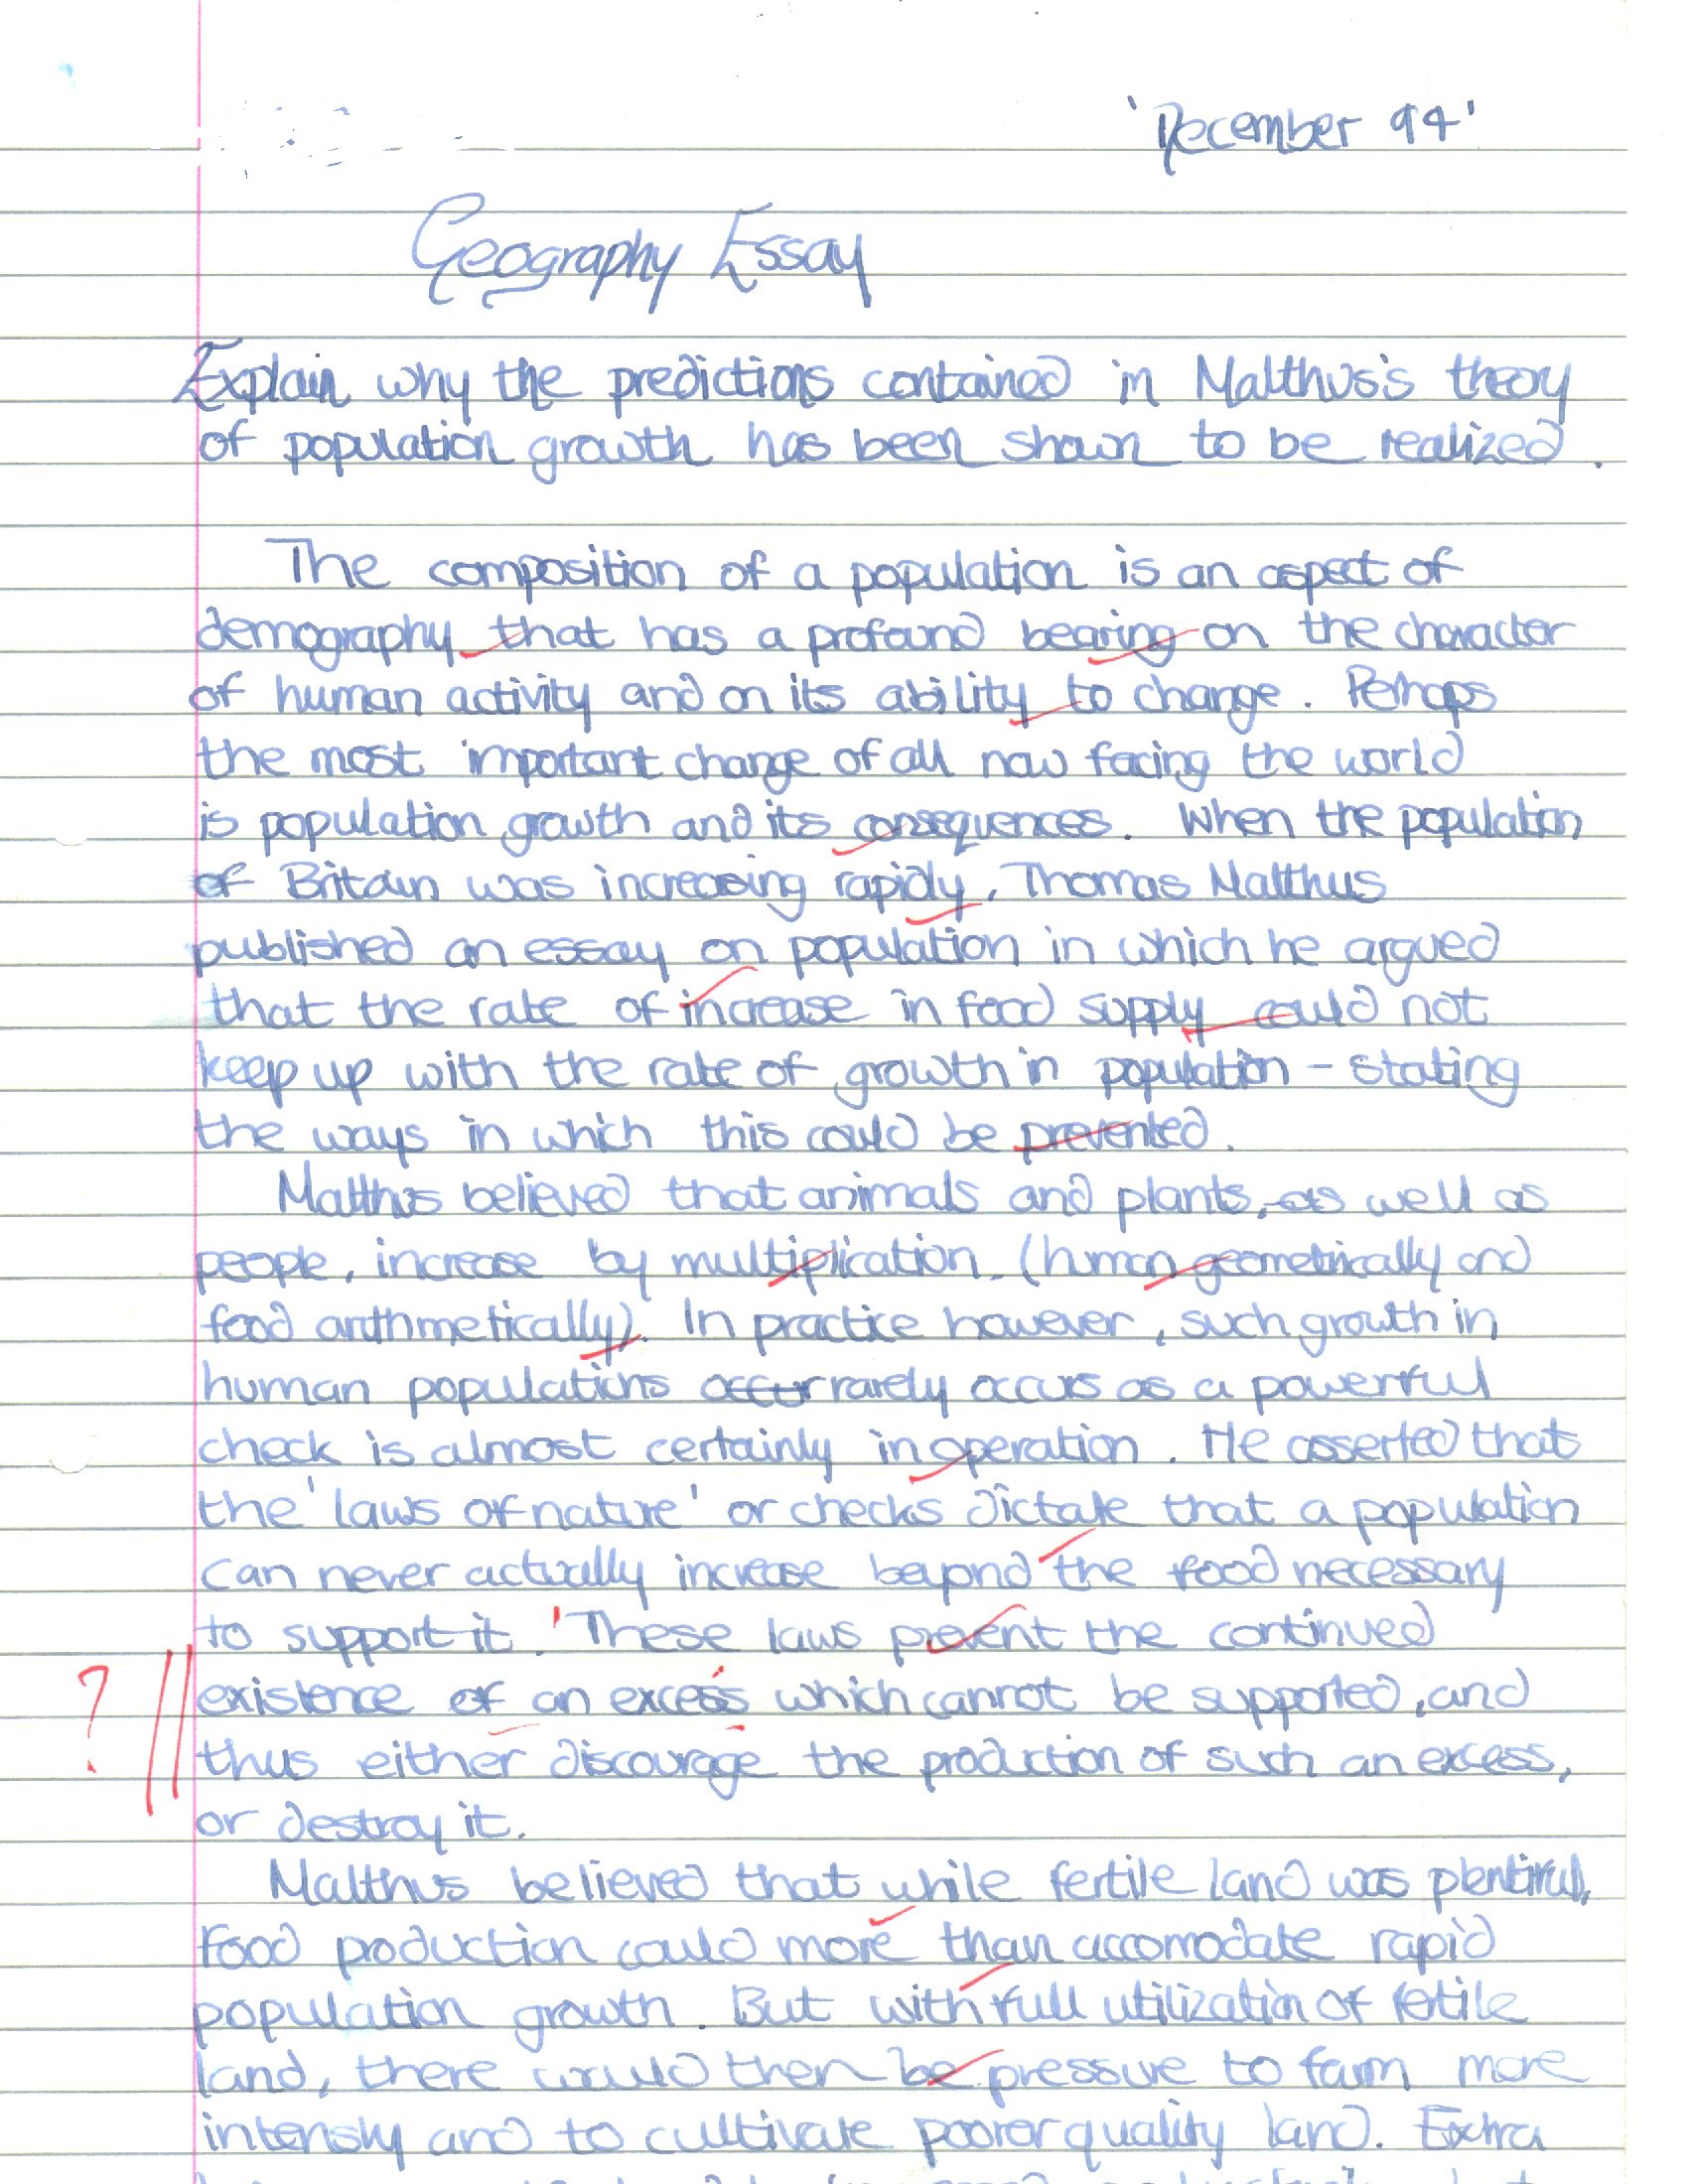 'December 94'
Geography Essay
Explain why the predictions contained in Malthus's theory
of population growth has been shown to be realized.
The composition of a population is an aspect of
demography that has a profound bearing on the character
of human activity and on its ability to change. Perhaps
the most important change of all now facing the world
is population growth and its consequences. When the population
of Britain was increasing rapidly, Thomas Malthus
published an essay on population in which he argued
that the rate of increase in food supply could not
keep up with the rate of growth in population - stating
the ways in which this could be prevented.
Malthus believed that animals and plants, as well as
people, increase by multiplication. (human geometrically and
food arithmetically). In practice however, such growth in
human populations occur rarely occurs as a powerful
check is almost certainly in operation. He asserted that
the 'laws of nature' or checks dictate that a population
can never actually increase beyond the food necessary
to support it. 'These laws prevent the continued
? existence of an excess which cannot be supported, and
thus either discourage the production of such an excess,
or destroy it.
Malthus believed that while fertile land was plentiful,
food production could more than accomodate rapid
population growth. But with full utilization of fertile
land, there would then be pressure to farm more
intensly and to cultivate poorer quality land. Extra